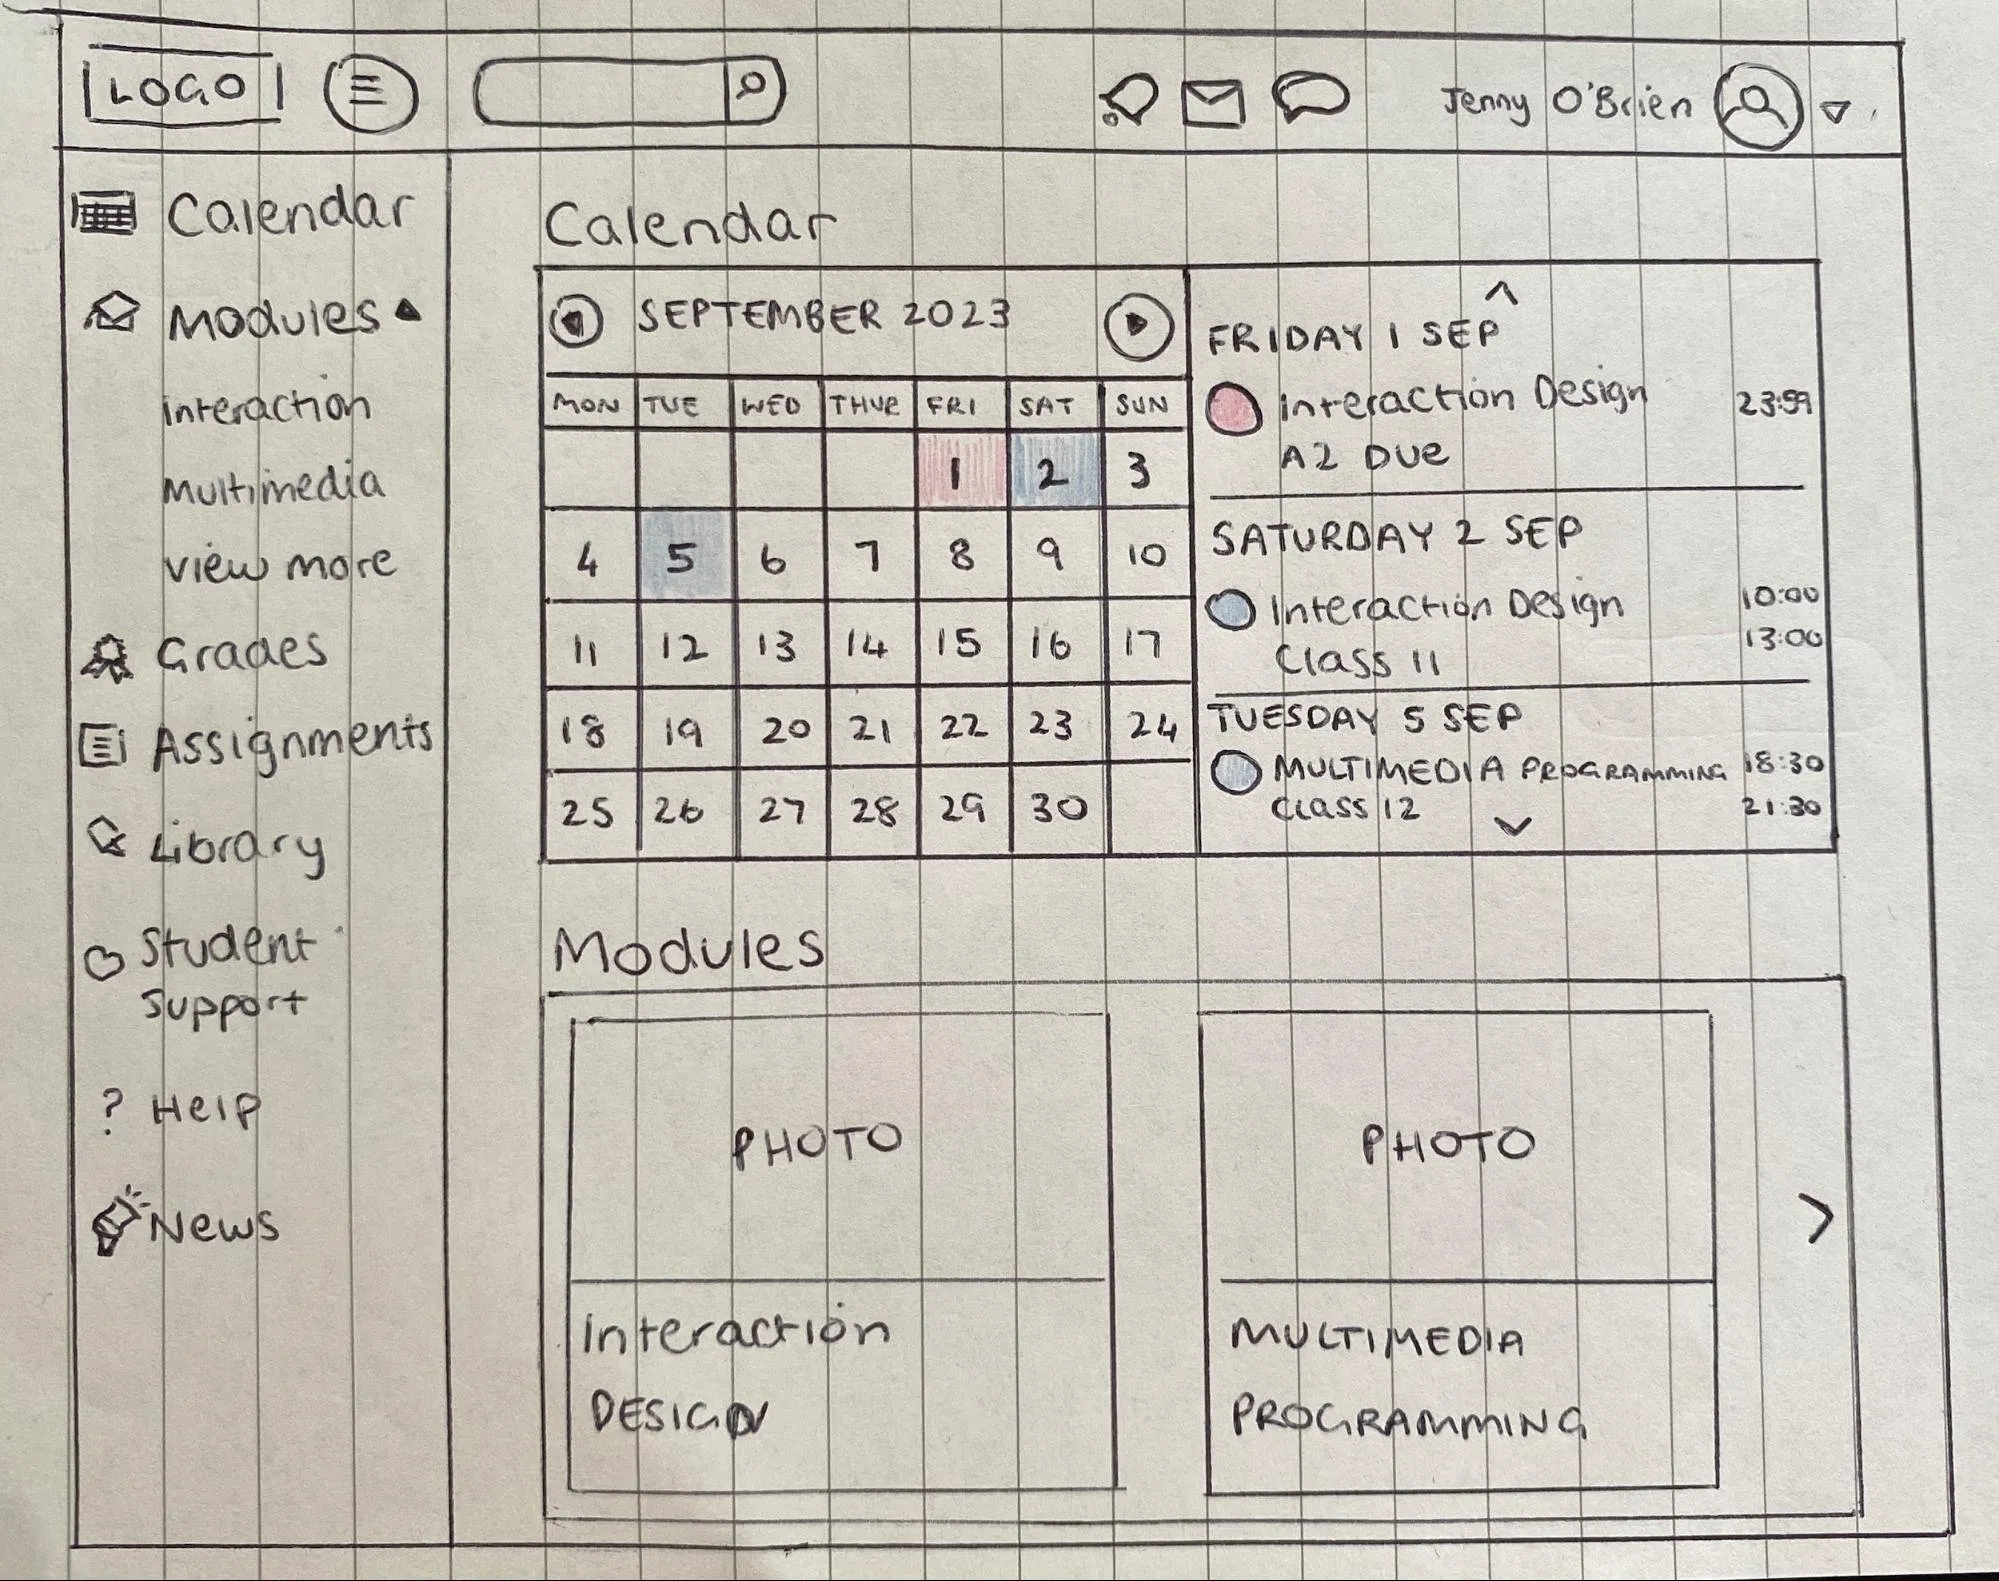 LOGO
Jenny O'Brien
Calendar
Modules
interaction
Multimedia
view more
Grades
Assignments
Library
Student
Support
? Help
News
Calendar
SEPTEMBER 2023
MON TUE WED THUR FRI SAT SUN
1 2 3
4 5 6 7 8 9 10
11 12 13 14 15 16 17
18 19 20 21 22 23 24
25 26 27 28 29 30
FRIDAY 1 SEP
Interaction Design 23:59
A2 Due
SATURDAY 2 SEP
Interaction Design 10:00
Class 11 13:00
TUESDAY 5 SEP
MULTIMEDIA PROGRAMMING 18:30
Class 12 21:30
Modules
PHOTO
Interaction
DESIGN
PHOTO
MULTIMEDIA
PROGRAMMING